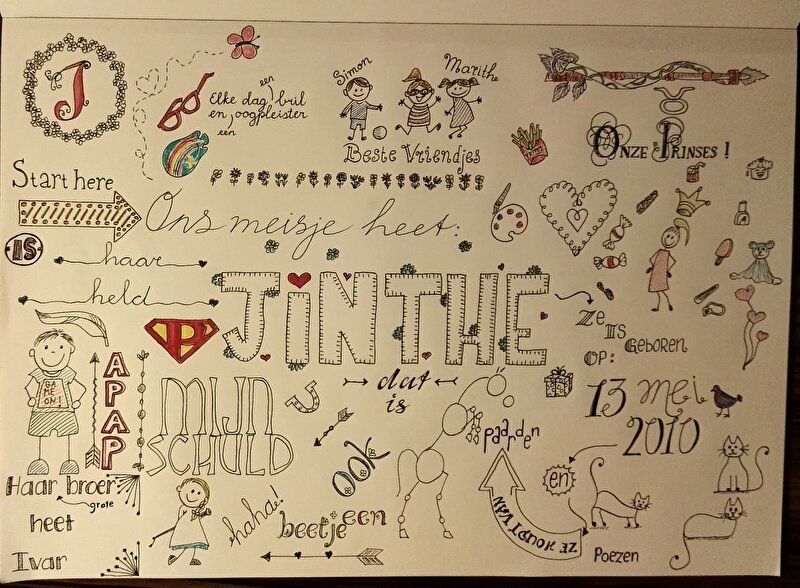 J
Simon
Marithe
Elke dag een bril
en een oogpleister
Beste Vriendjes
Onze Prinses!
Start here
Ons meisje heet:
JINTHE
IS
haar
held
P
APAP
GA
ME
ON!
Ze is geboren
op:
13 mei
2010
dat
is
ook
een
beetje
MIJN
SCHULD
haha!
Haar grote broer
heet
Ivar
ZE HOUDT VAN
paarden
en
Poezen